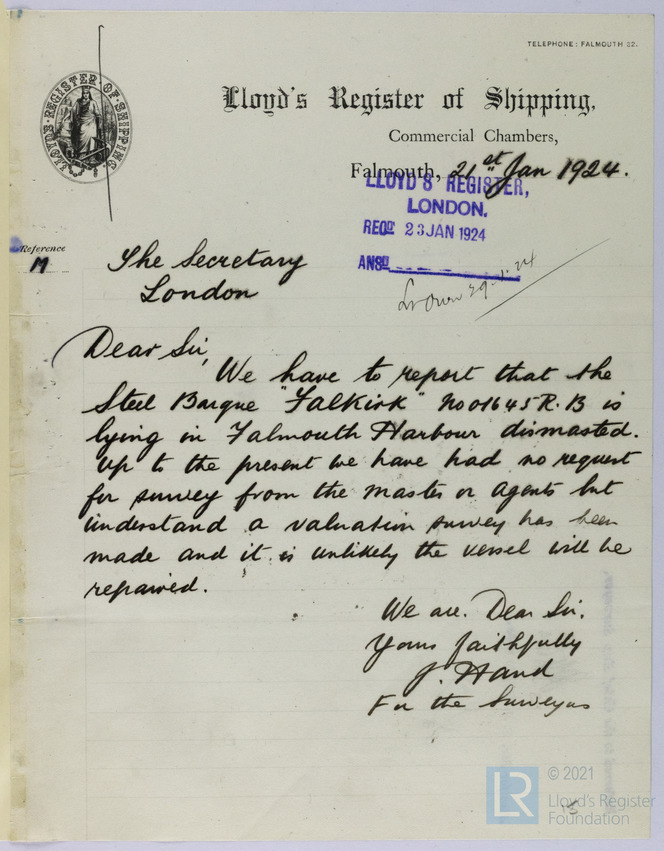 TELEPHONE: FALMOUTH 22.
LLOYD'S REGISTER OF SHIPPING
Lloyd's Register of Shipping,
Commercial Chambers,
Falmouth, 21st Jan 1924.
LLOYD'S REGISTER,
LONDON.
RECD 23 JAN 1924
ANSD
29.1.24
Reference
M
The Secretary
London
Dear Sir,
We have to report that the
Steel Barque "Falkirk" No 01645 R.B is
lying in Falmouth Harbour dismasted.
Up to the present we have had no request
for survey from the Master or Agents but
understand a valuation survey has been
made and it is unlikely the vessel will be
repaired.
We are. Dear Sir.
Yours faithfully
J. Hand
For the Surveyors
15
LR
© 2021
Lloyd's Register
Foundation